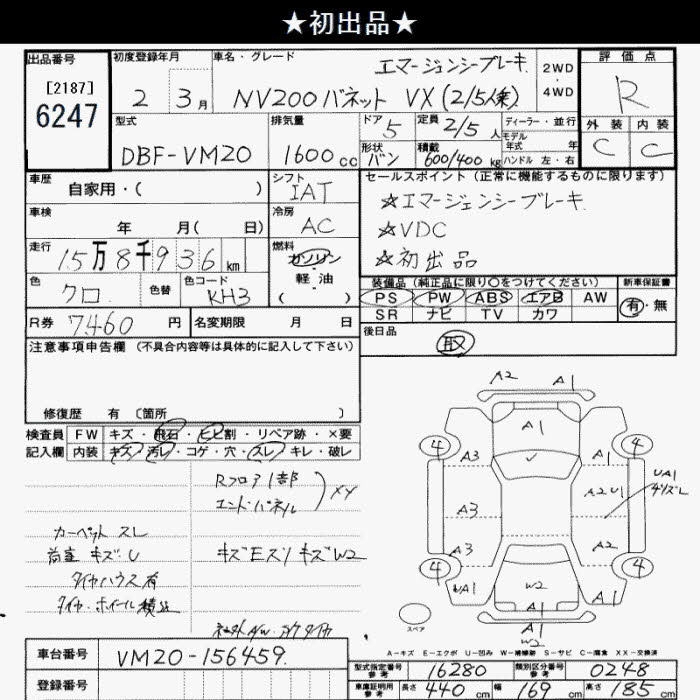 ★初出品★
出品番号
[2187]
6247
初度登録年月
2年 3月
車名・グレード
エマージェンシーブレーキ
NV200バネット VX (2/5人乗)
2WD
4WD
評価点
R
外装 内装
C C
型式
DBF-VM20
排気量
1600cc
ドア 5
定員 2/5人
ディーラー・並行
モデル
年式 年
形状 バン
積載 600/400kg
ハンドル 左・右
車歴
自家用・( )
シフト
IAT
車検
年 月( 日)
冷房
AC
走行
15万8千936km
燃料
ガソリン
軽油
( )
色
クロ
色替
色コード
KH3
R券 7460円
名変期限 月 日
セールスポイント(正常に機能するものに限ります)
☆エマージェンシーブレーキ
☆VDC
☆初出品
装備品(純正品に限り○をつけてください)
PS PW ABS エアB AW
SR ナビ TV カワ
新車保証書
有・無
後日品
取
注意事項申告欄(不具合内容等は具体的に記入して下さい)
修復歴 有〔箇所 〕
検査員 FW キズ・飛石・ヒビ割・リペア跡・×要
記入欄 内装 キズ・汚レ・コゲ・穴・スレ・キレ・破レ
Rフロア1部
エンドパネル
XX
カーペットスレ
荷室 キズ・U
キズEスリキズW2
タイヤハウス有
タイヤ・ホイール積込
A2 A1
A1
4 4
A3 A1
A2 U1
UA1
A3
A3 A2
4 4
UA1 W2 A1
A1
A1
W2
スペア
A-キズ E-エクボ U-凹み W-補修跡 S-サビ C-腐食 XX-交換済
車台番号 VM20-156459
登録番号
型式指定番号 参考 16280
類別区分番号 参考 0248
車庫証明用 参考 長さ 440cm 幅 169cm 高さ 185cm